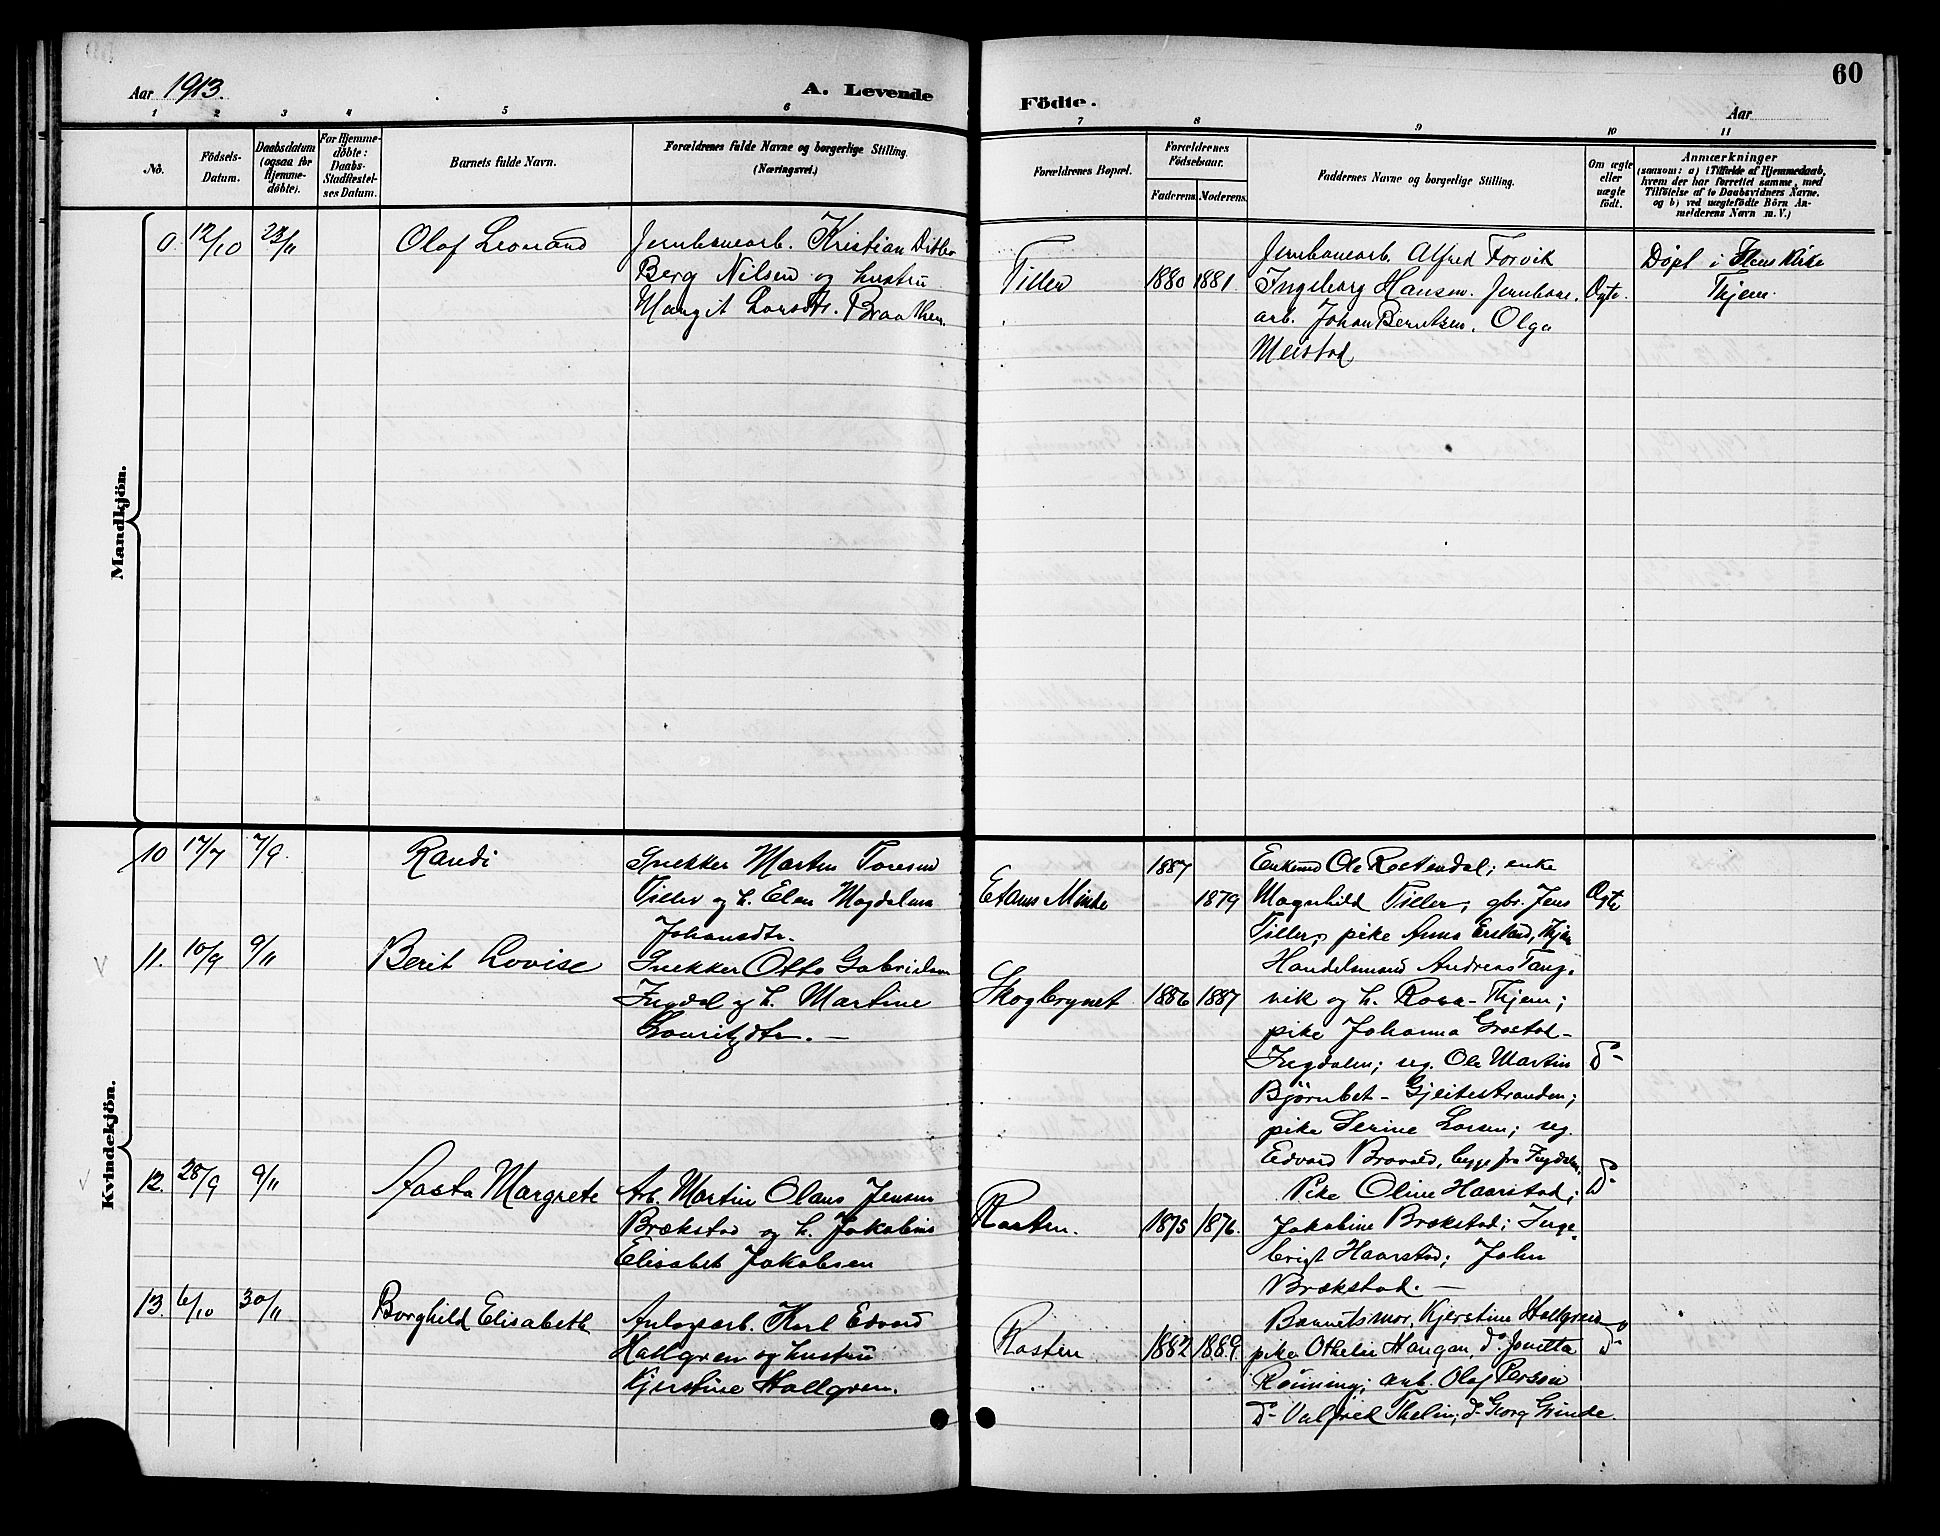 60
Aar 1913.
A. Levende
Födte.
Aar
1 2 3 4 5 6
7 8 9 10 11
No.
Födsels-
Datum.
Daabsdatum
(ogsaa for
Hjemme-
döbte).
For Hjemme-
döbte:
Daabs-
Stadfæstel-
ses Datum.
Barnets fulde Navn.
Forældrenes fulde Navne og borgerlige Stilling.
(Næringsvei.)
Forældrenes Bopæl.
Forældrenes
Födselsaar.
Faderens. Moderens.
Faddernes Navne og borgerlige Stilling.
Om ægte
eller
uægte
födt.
Anmærkninger
(saasom: a) i Tilfælde af Hjemmedaab,
hvem der har forrettet samme, med
Tilföielse af to Daabsvidners Navne.
og b) ved uægtefödte Börn An-
melderens Navn m. V.)
Mandkjön.
9. 12/10 23/11 Olaf Leonard
Jernbanearb. Kristian Ditlev
Berg Nilsen og hustru
Margit Larsdtr. Braathen.
Tiller 1880 1881.
Jernbanearb. Alfred Forvik
Ingeborg Hansen. Jernbane.
arb. Johan Berntsen. Olga
Meistad
Ægte.
Døpt i Ilens Kirke
Thjem.
Kvindekjön.
10 17/7 7/9. Randi
Snekker Martin Toresen
Tiller og h. Elen Magdalena
Johansdtr.
Etams Minde 1887 1879
Enkemd Ole Rostendal; enke
Magnhild Tiller, gbr. Jens
Tiller, pike Anna Erstad, Thjem
Ægte
11. 10/9 9/11 Berit Lovise
Snekker Otto Gabrielsen
Ingdal og h. Martine
Lauritzdtr. —
Skogbrynet 1886 1887
Handelsmand Andreas Tang-
vik og h. Rosa - Thjem;
pike Johanna Grostad -
Ingdalen; ug. Ole Martin
Bjørnbet - Gjeitestranden;
pike Serine Larsen; ug.
Edvard Bravold, begge fra Ingdalen.
do
12. 28/9 9/11 Aasta Margrete
Arb. Martin Olaus Jensen
Brækstad og h. Jakobine
Elisabet Jakobsen
Rosten. 1875 1876.
Pike Oline Haarstad;
Jakobine Brækstad; Inge-
brigt Haarstad; John
Brækstad. —
do
13. 6/10 30/11 Borghild Elisabeth
Anlægsarb. Karl Edvard
Hallgren og hustru
Kjerstine Hallgren.
Rosten 1882 1889.
Barnets mor, Kjerstine Hallgren
pike Othelie Haugan, do Jonetta
Rönning; arb. Olaf Person
do Valfrid Thelin; do Georg Grinde.
do